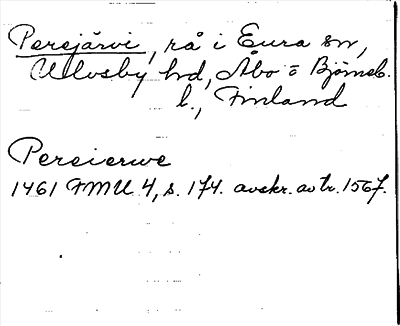 Perejärvi, rå i Eura sn,
Ulvsby hd, Åbo o Björneb.
l., Finland
Pereierwe
1461 FMU 4, s. 174. avskr. av tr. 1567.